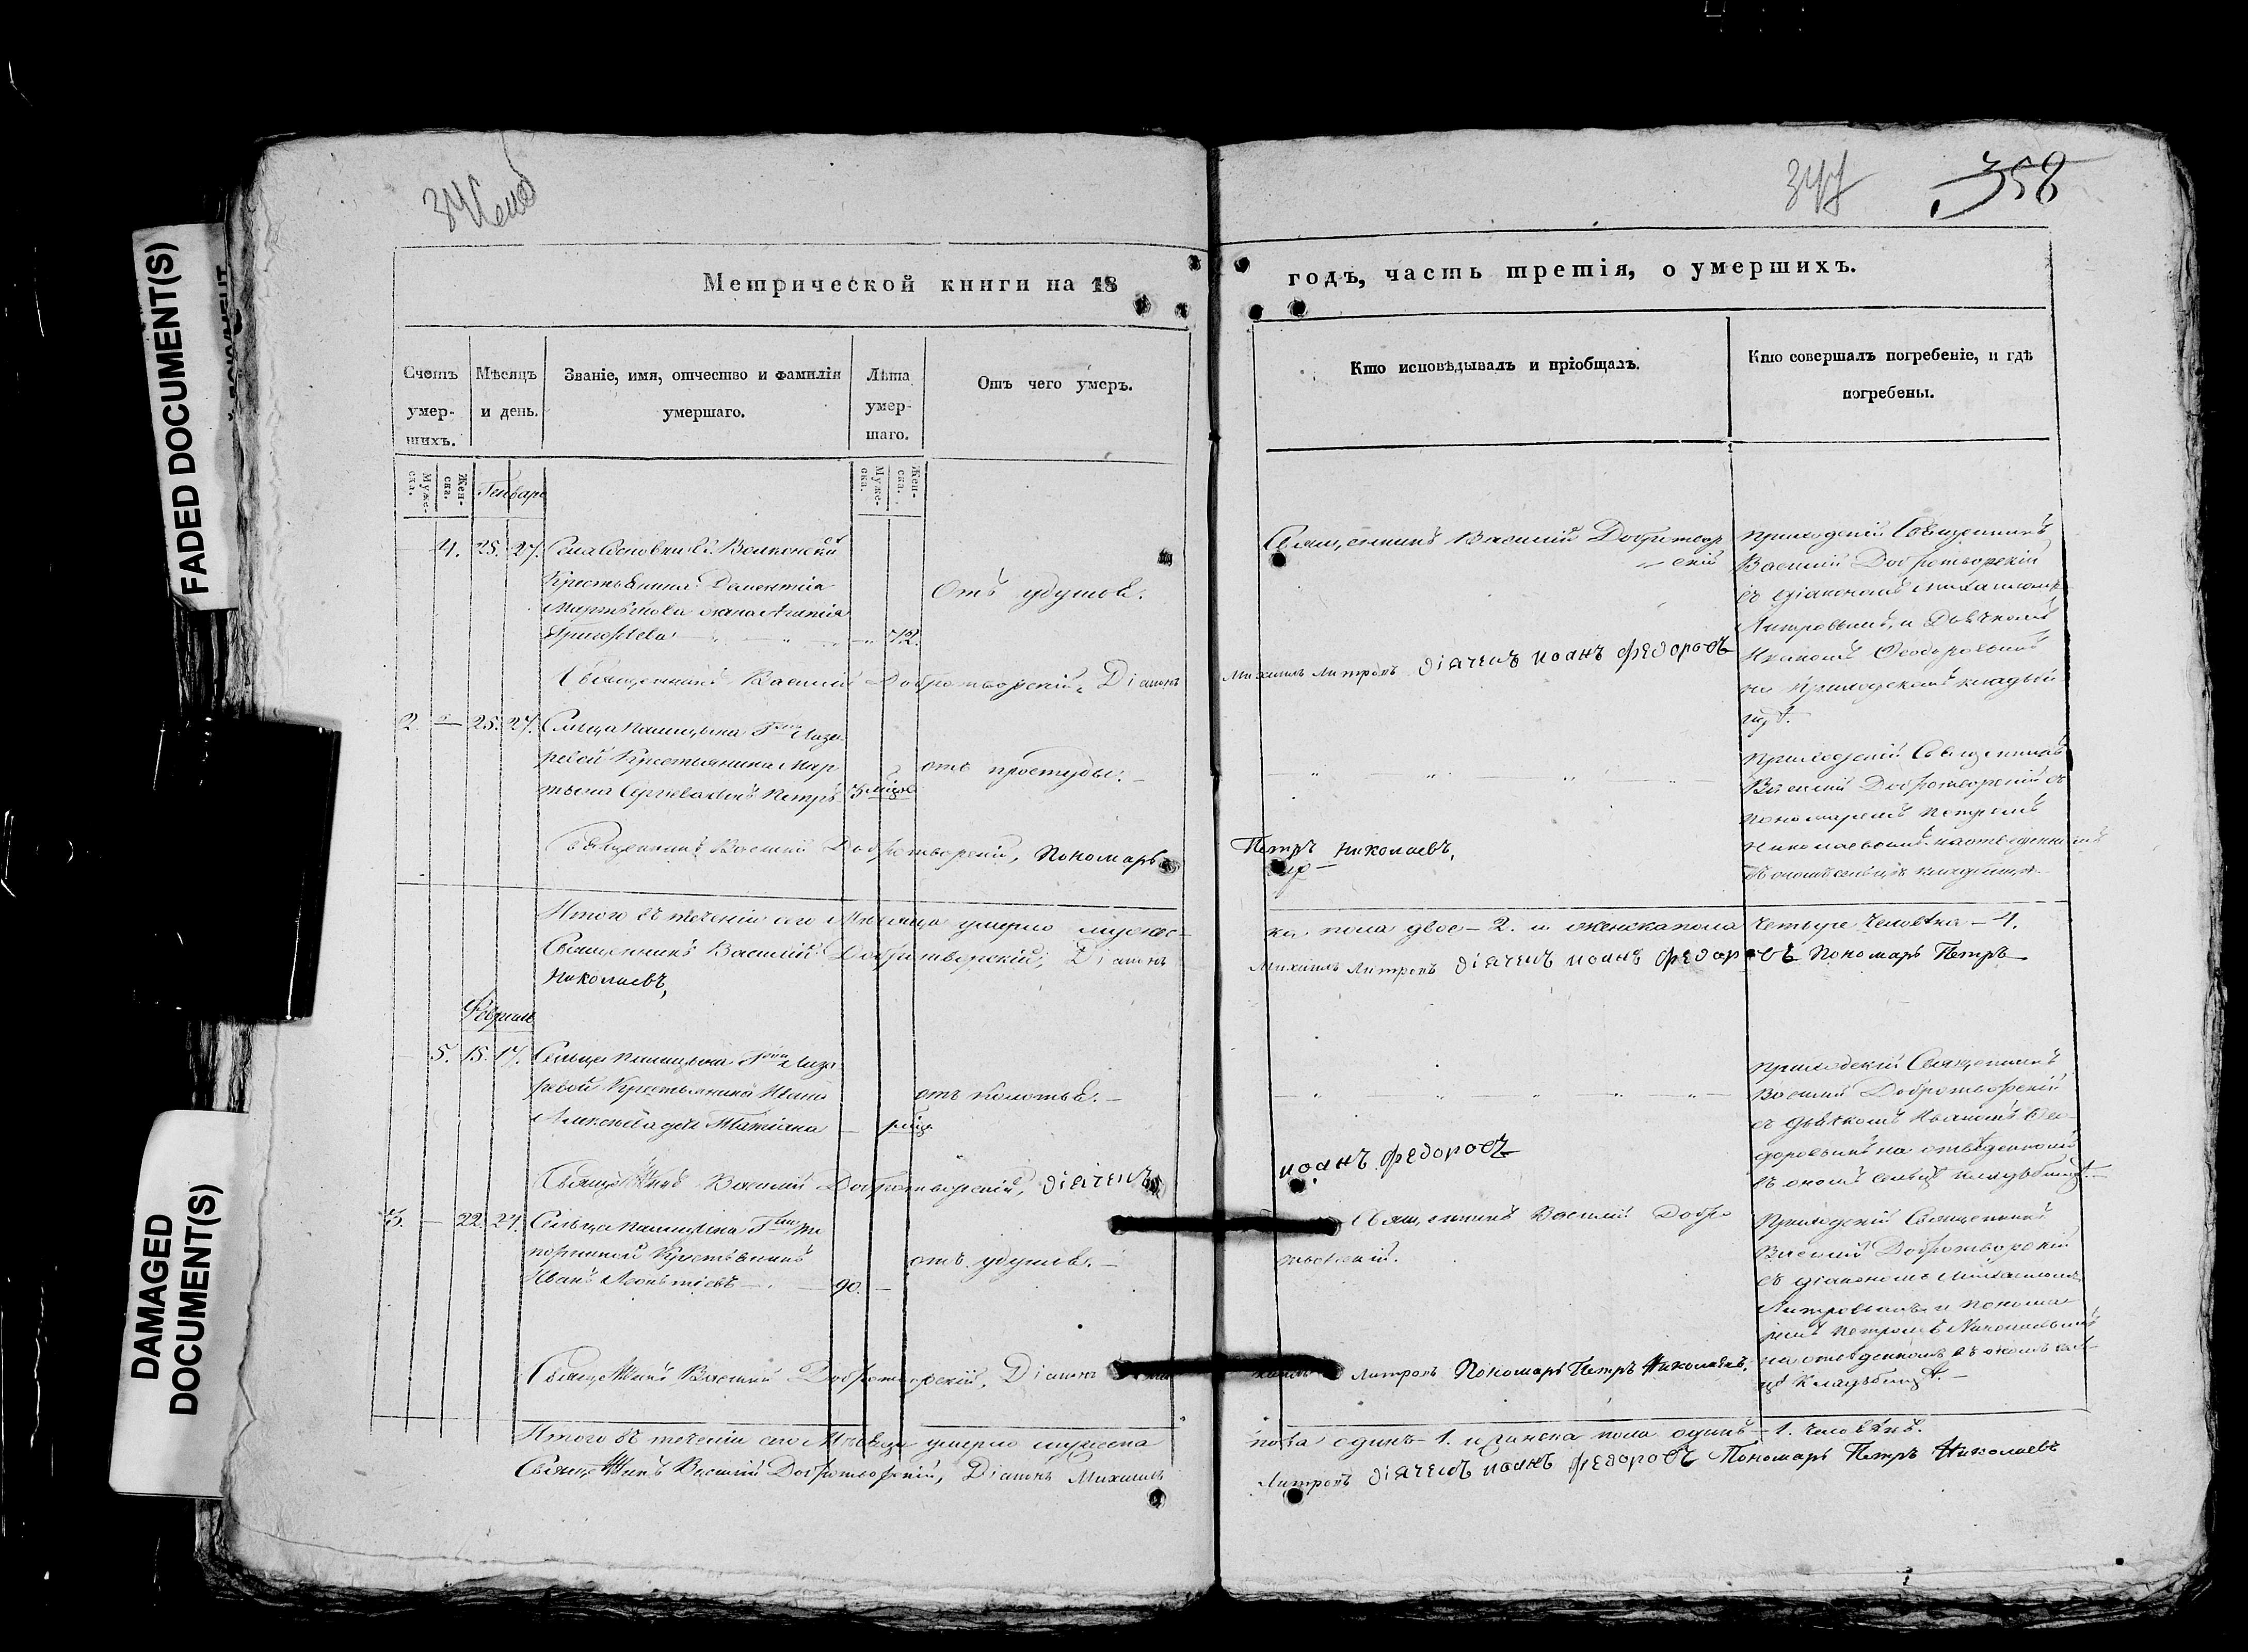 FADED DOCUMENT(S)
DAMAGED
DOCUMENT(S)
358
Метрической книги на 18
годъ, часть третія, о умершихъ.
Счетъ умер-шихъ.
Мѣсяцъ и день.
Званіе, имя, отчество и фамилія умершаго.
Лѣта умер-шаго.
Отъ чего умеръ.
Кто исповѣдывалъ и пріобщалъ.
Кто совершалъ погребеніе, и гдѣ погребены.
Муже-ска.
Жен-ска.
Генварь
Муже-ска.
Жен-ска.
4. 25. 27.
Крестьянина
жена Агапія
72.
Отъ удушья.
Священникъ Василій Добротвор
скій
Приходскій Священникъ
Василій Добротворскій
съ діакономъ Михаиломъ
Митровымъ, и Дьячкомъ
Иваномъ Ѳеодоровымъ
на приходскомъ кладби
щѣ.
Священникъ Василій Добротворскій, Діаконъ
Михаилъ Митровъ діячекъ иоанъ федоровъ
2. — 25. 27.
Сельца
Крестьянина Мар
тына Сергѣева сынъ Петръ
3
отъ простуды. —
Приходскій Священникъ
Василій Добротворскій съ
пономаремъ Петромъ
Николаевымъ
Священникъ Василій Добротворскій, Пономарь
Петръ Николаевъ,
Итого въ теченіи сего Мѣсяца умерло мужес-
ка пола двое — 2. и женска пола четыре человѣка — 4.
Священникъ Василій Добротворскій, Діаконъ
Михаилъ Митровъ діячекъ иоанъ федоровъ Пономарь Петръ
Николаевъ,
Февраль
5. 15. 17.
Сельца
Крестьянина Ивана
Алексѣева дочь Татіана
отъ колотья. —
Приходскій Священникъ
Василій Добротворскій
съ дьячкомъ Иваномъ Ѳео-
доровымъ на отведенномъ
въ ономъ сельцѣ кладбищѣ. —
Священникъ Василій Добротворскій, діячекъ
иоанъ федоровъ
3. — 22. 24.
Сельца
Крестьянинъ
Иванъ Леонтіевъ
90. —
отъ удушья. —
Священникъ Василій Добро
творскій.
Приходскій Священникъ
Василій Добротворскій
съ діакономъ Михаиломъ
Митровымъ и понома
ремъ Петромъ Николаевымъ
на отведенномъ въ ономъ сель-
цѣ Кладбищѣ. —
Священникъ Василій Добротворскій, Діаконъ
Митровъ Пономарь Петръ Николаевъ.
Итого въ теченіи сего Мѣсяца умерло мужеска
пола одинъ — 1. и женска пола одинъ — 1. человѣкъ.
Священникъ Василій Добротворскій, Діаконъ Михаилъ
Митровъ діячекъ иоанъ федоровъ Пономарь Петръ Николаевъ